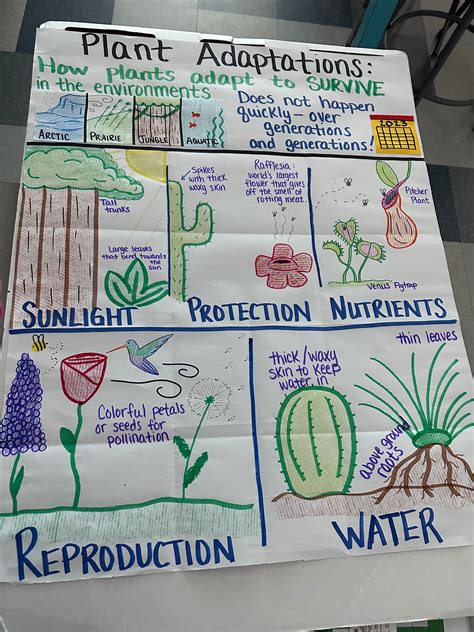 Plant Adaptations:
How plants adapt to SURVIVE
in the environments
Does not happen
quickly - over
generations
and generations!
2023
ARCTIC
PRAIRIE
JUNGLE
AQUATIC
Tall
trunks
Large leaves
that bend towards
the sun
SUNLIGHT
Spikes
with thick
waxy skin
Rafflesia:
world's largest
flower that gives
off the smell of
rotting meat.
PROTECTION
Pitcher
Plant
Venus Flytrap
NUTRIENTS
Colorful petals
or seeds for
pollination
REPRODUCTION
thick/waxy
skin to keep
water in
thin leaves
above ground
roots
WATER